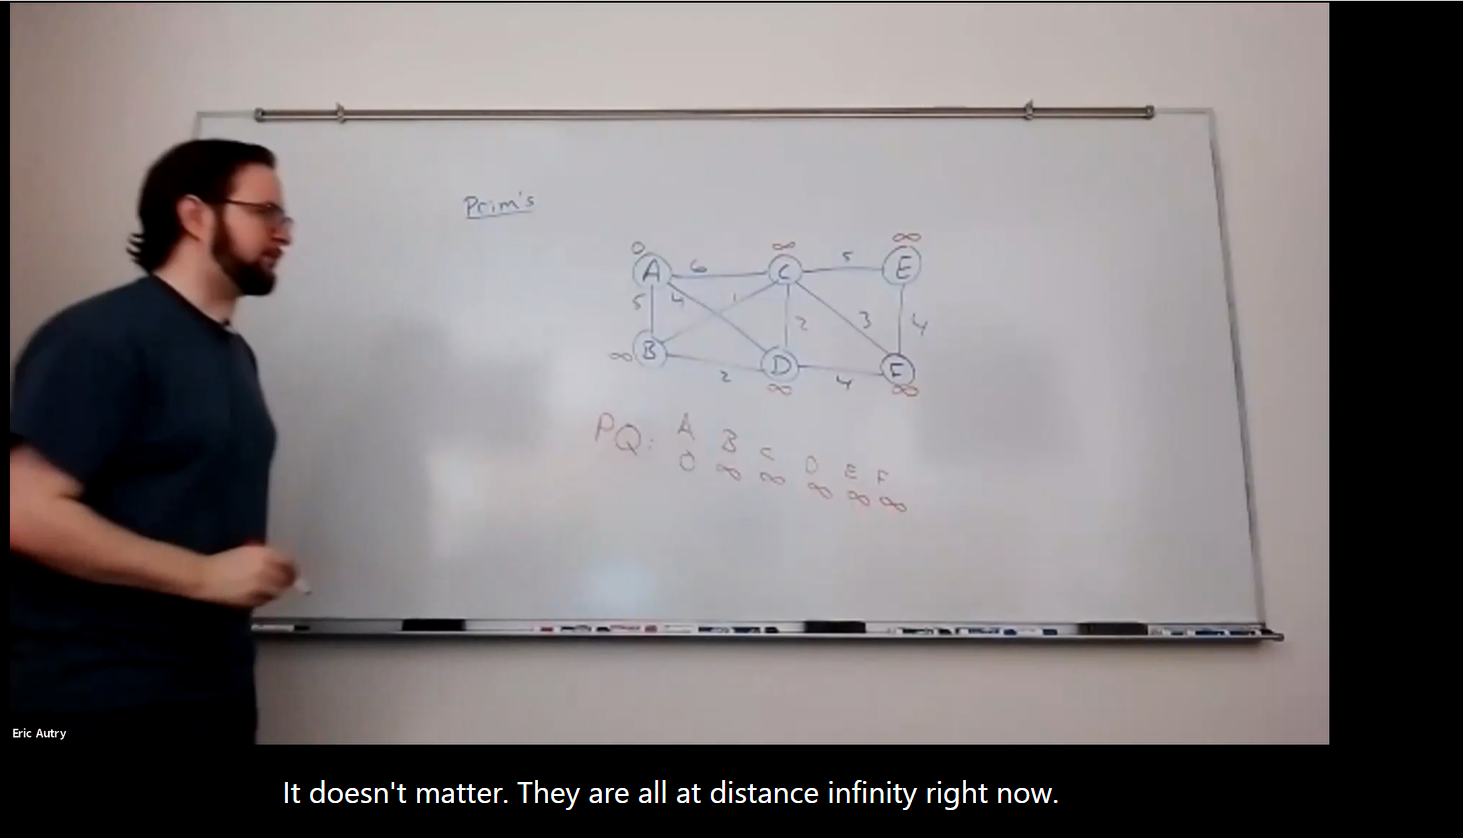 Prim's
0 ∞ ∞
A 6 C 5 E
5 4 1 2 3 4
∞ B 2 D 4 F
∞ ∞
PQ: A B C D E F
0 ∞ ∞ ∞ ∞ ∞
Eric Autry
It doesn't matter. They are all at distance infinity right now.